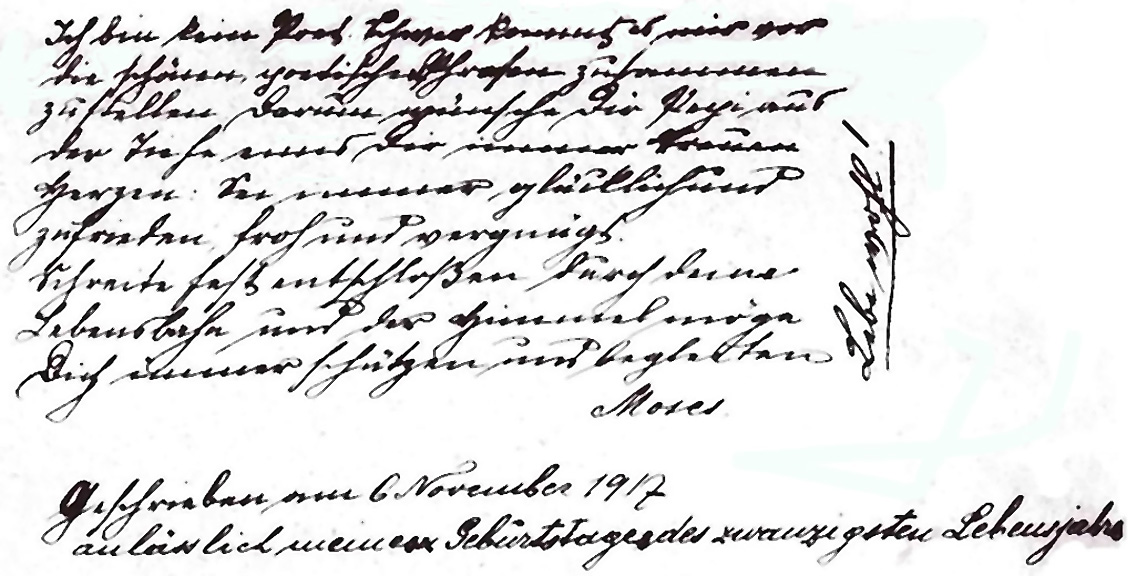 Ich bin kein Poet. Schwer kommt es mir vor
die schönen, poetischen Phrasen zusammen
zustellen. Darum wünsche Dir Pepi aus
der Tiefe eines Dir immer treuen
Herzen: Sei immer glücklich und
zufrieden, froh und vergnügt.
Schreite fest entschloßen durch deine
Lebensbahn und der Himmel möge
Dich immer schützen und begleiten
Moses
Lebe wohl!
Geschrieben am 6 November 1917
anlässlich meines Geburtstages des zwanzigsten Lebensjahres